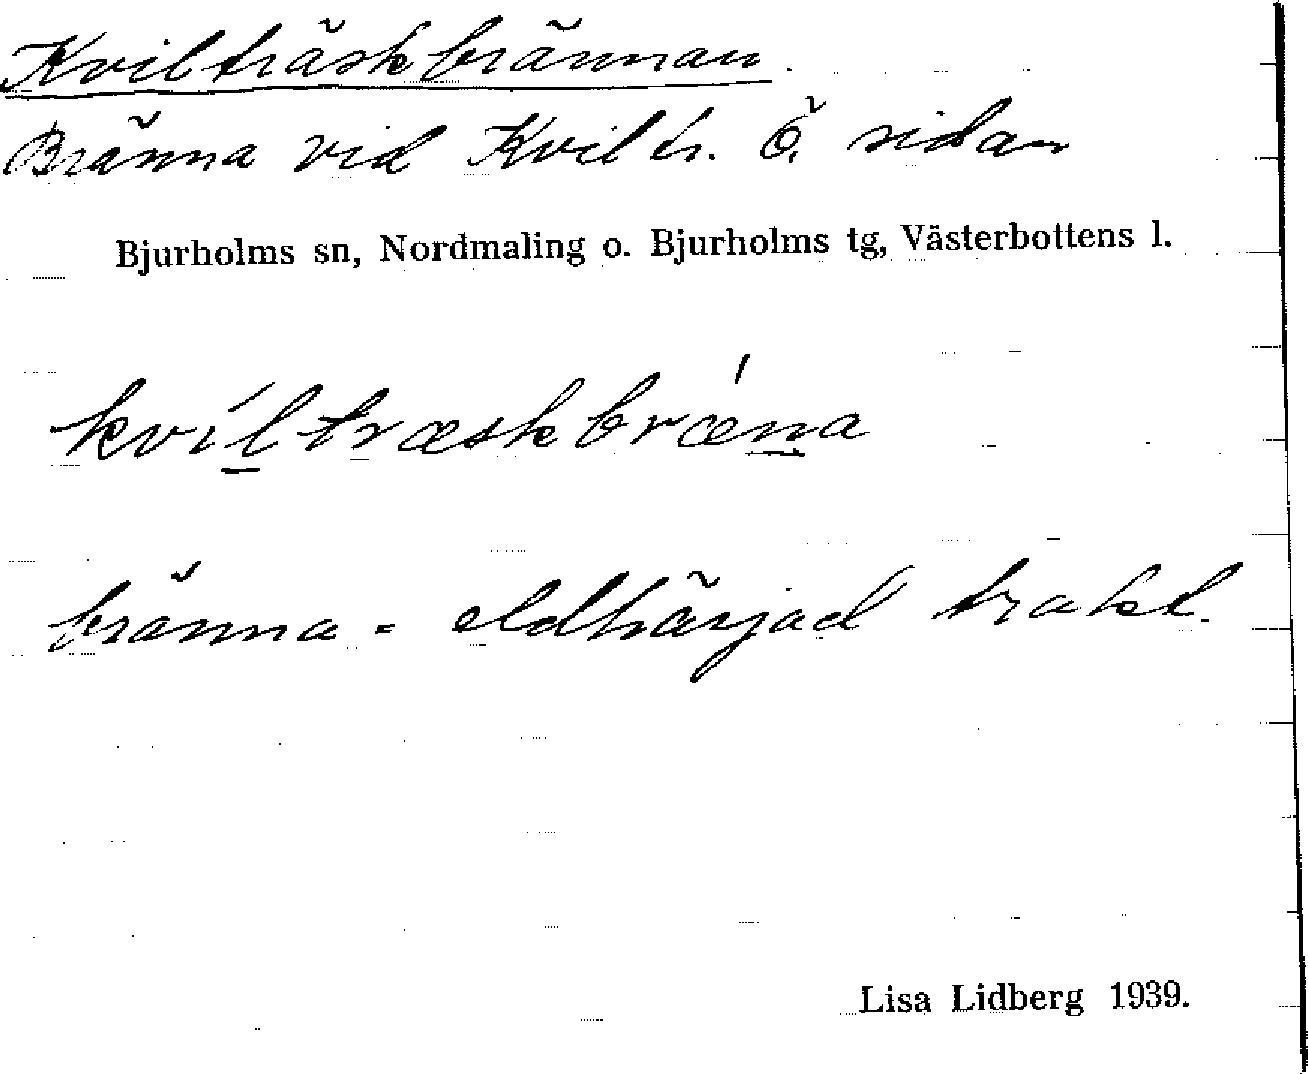 Kvilträskbrännan.
Bränna vid Kviltr. Ö. sidan
Bjurholms sn, Nordmaling o. Bjurholms tg, Västerbottens l.
kvíltræskbrǽna
bränna = eldhärjad trakt.
Lisa Lidberg 1939.